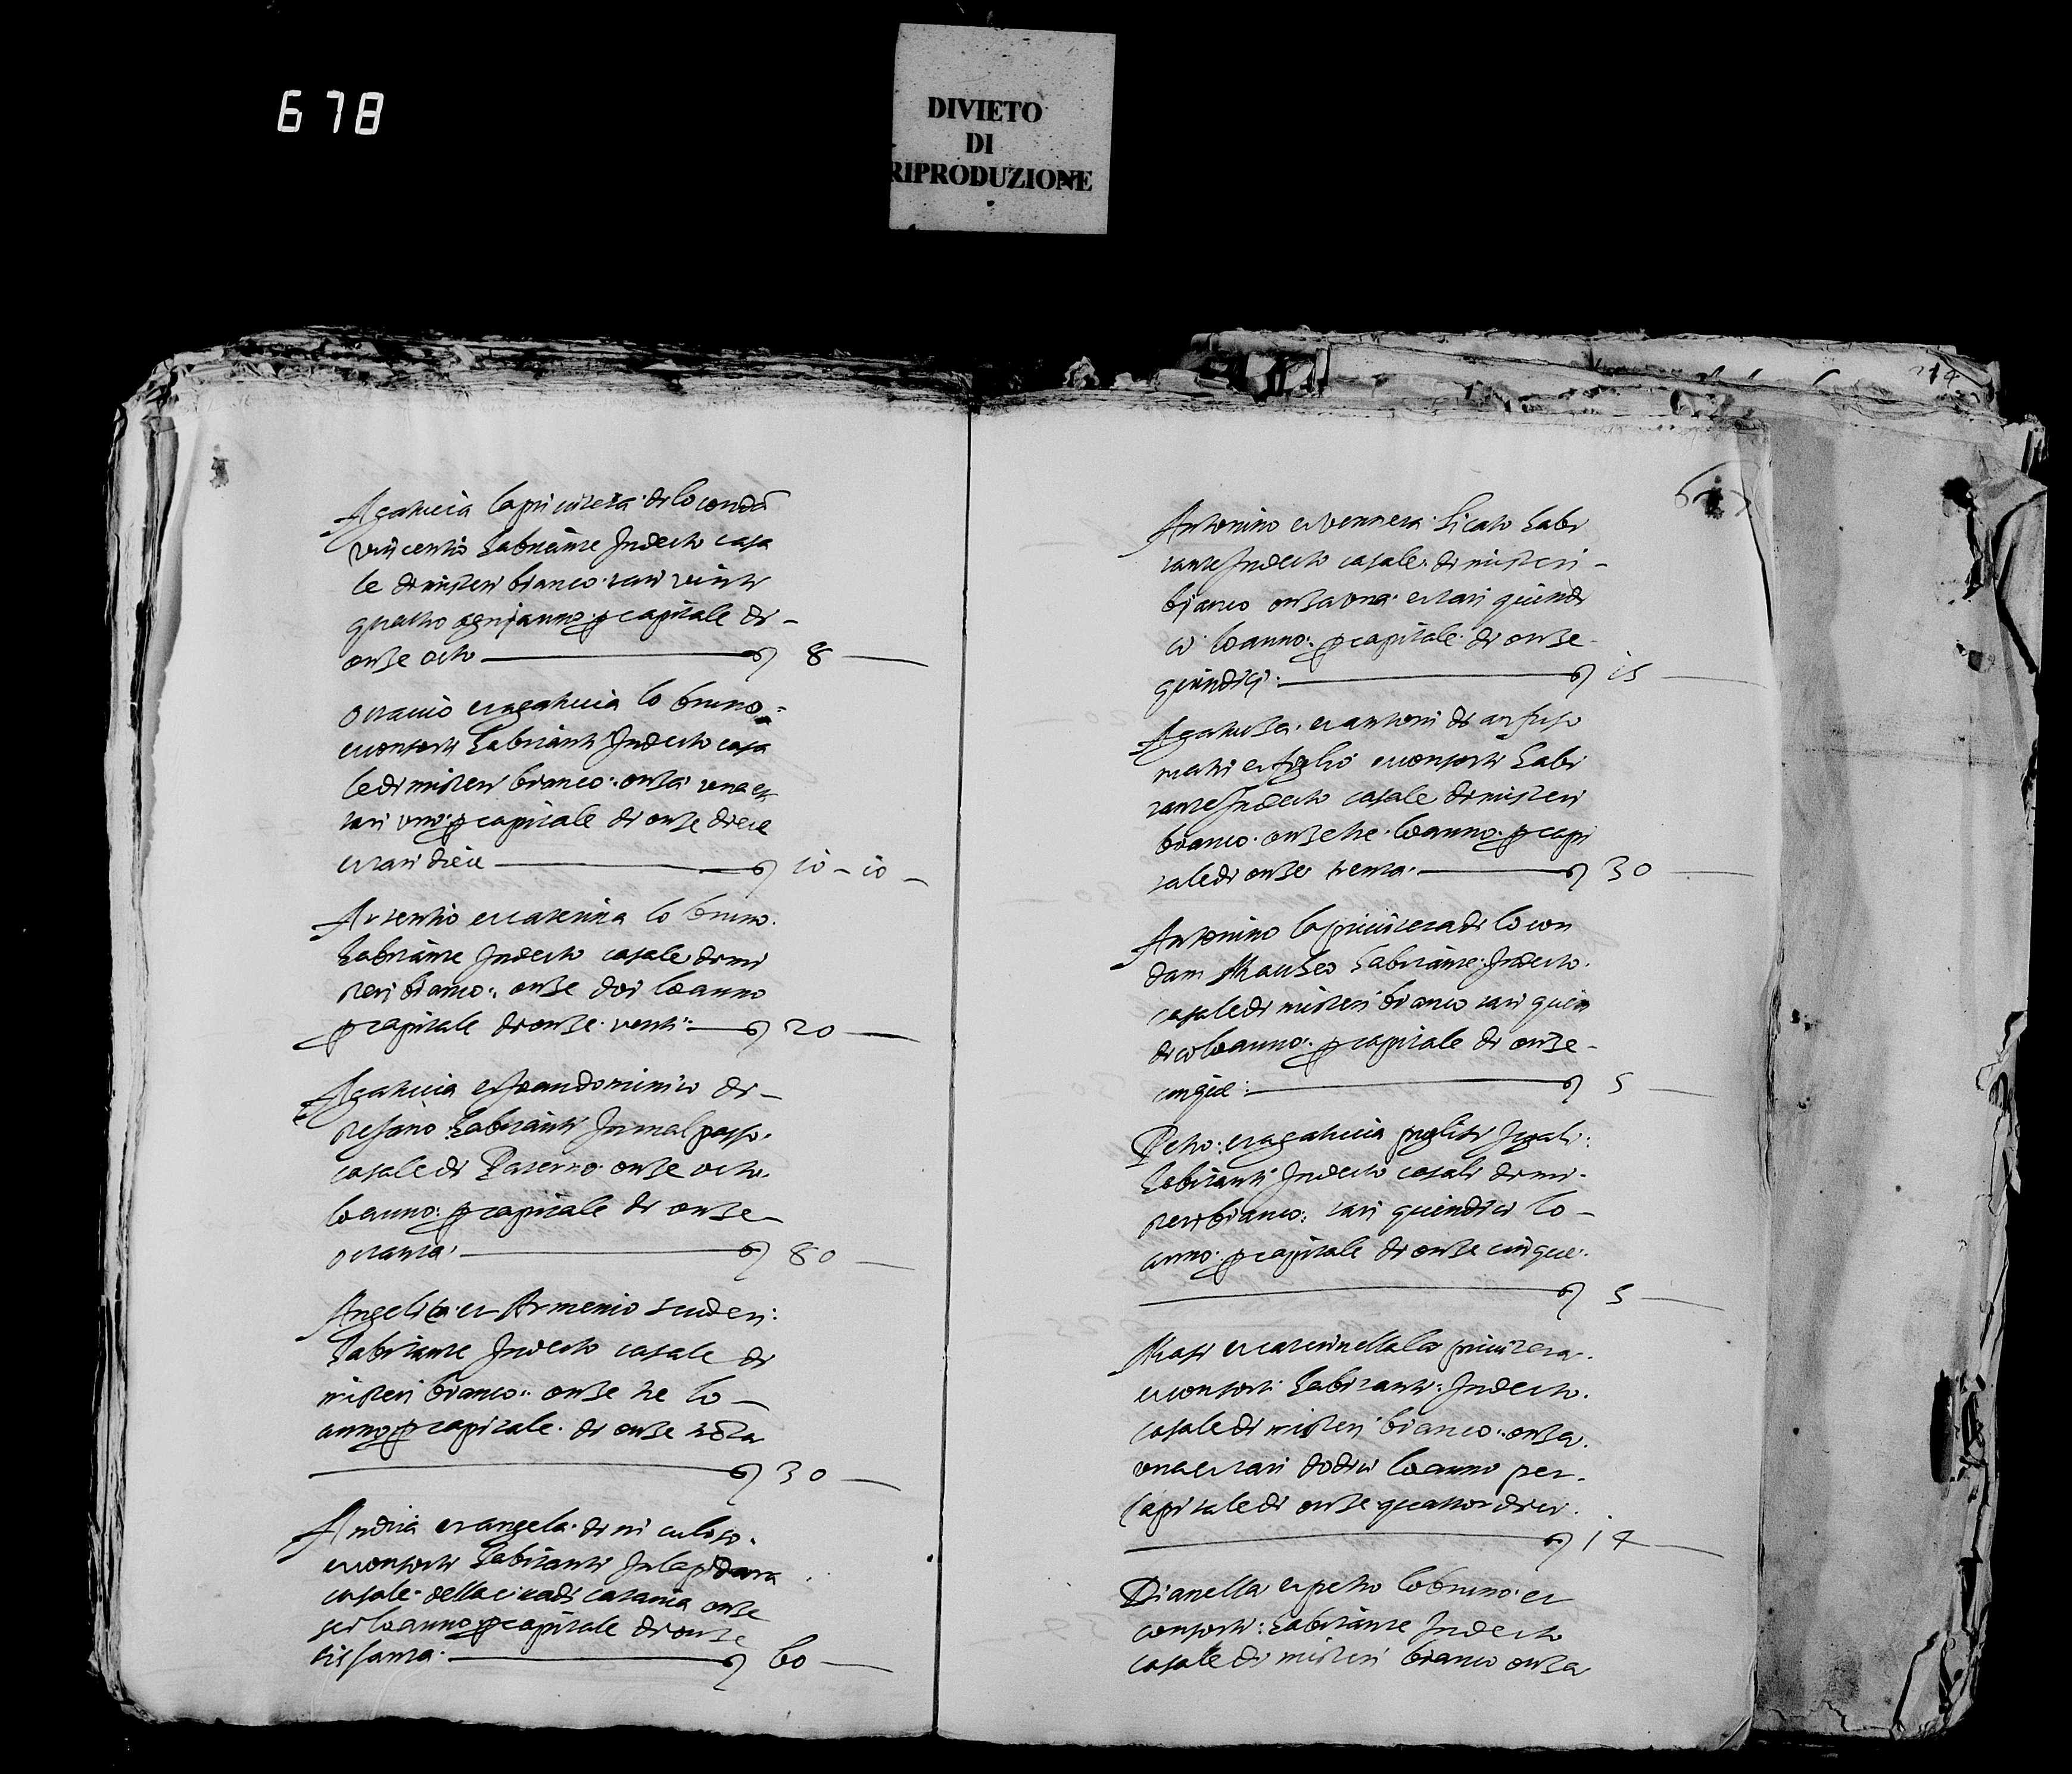 678
DIVIETO
DI
RIPRODUZIONE
214
Agatuccia la privitera di lo condã
vincentio habitante In decto casa
le di misteri bianco tari vinti
quattro ogni anno p capitale di -
onze octo 8
Ottavio et agatuccia lo bruno
et consorti habitanti In decto casa
le di misteri bianco: onza una et
tari uno p capitale di onze diece
et tari diece 10 - 10 -
et caterina lo bruno.
habitante In decto casale di mi
steri bianco: onze doi lo anno
p capitale di onze venti 20
Agatuccia et Joandominico di -
stefano habitanti In malpasso.
casale di Paterno onze octo.
lo anno: p capitale di onze -
octanta 80
Angelica et Armenio scuderi:
habitante In decto casale di
misteri bianco: onze tre lo -
anno p capitale di onze trẽta
30
Andria et angela di ni
et consorti habitanti In la pidara
casale della cita di catania onze
sei lo anno p capitale di onze
sissanta 60
Antonino et vennera licato habi
tante In decto casale di misteri -
bianco onza una et tari quindi
ci lo anno: p capitale di onze -
quindici 15
Agatuza et antoni di anfuso
matri et figlio et consorti habi
tante In decto casale di misteri
bianco onze tre lo anno p capi
tale di onze trenta 30
Antonino la privitera di lo con
dam Matheo habitante In decto.
casale di misteri bianco tari quin
dici lo anno: p capitale di onze -
cinque: 5
Petro: et agatuccia puglisi
habitanti In decto casali di mi -
steri bianco: tari quindici lo -
anno p capitale di onze cinque:
5
Masi et caterinella la privitera.
et consorti habitanti: In decto.
casale di misteri bianco: onza.
una et tari dodici lo anno per.
capitale di onze quattordici.
14
Dianella et petro lo bruno et
consorti: habitante In decto
casale di misteri bianco onza